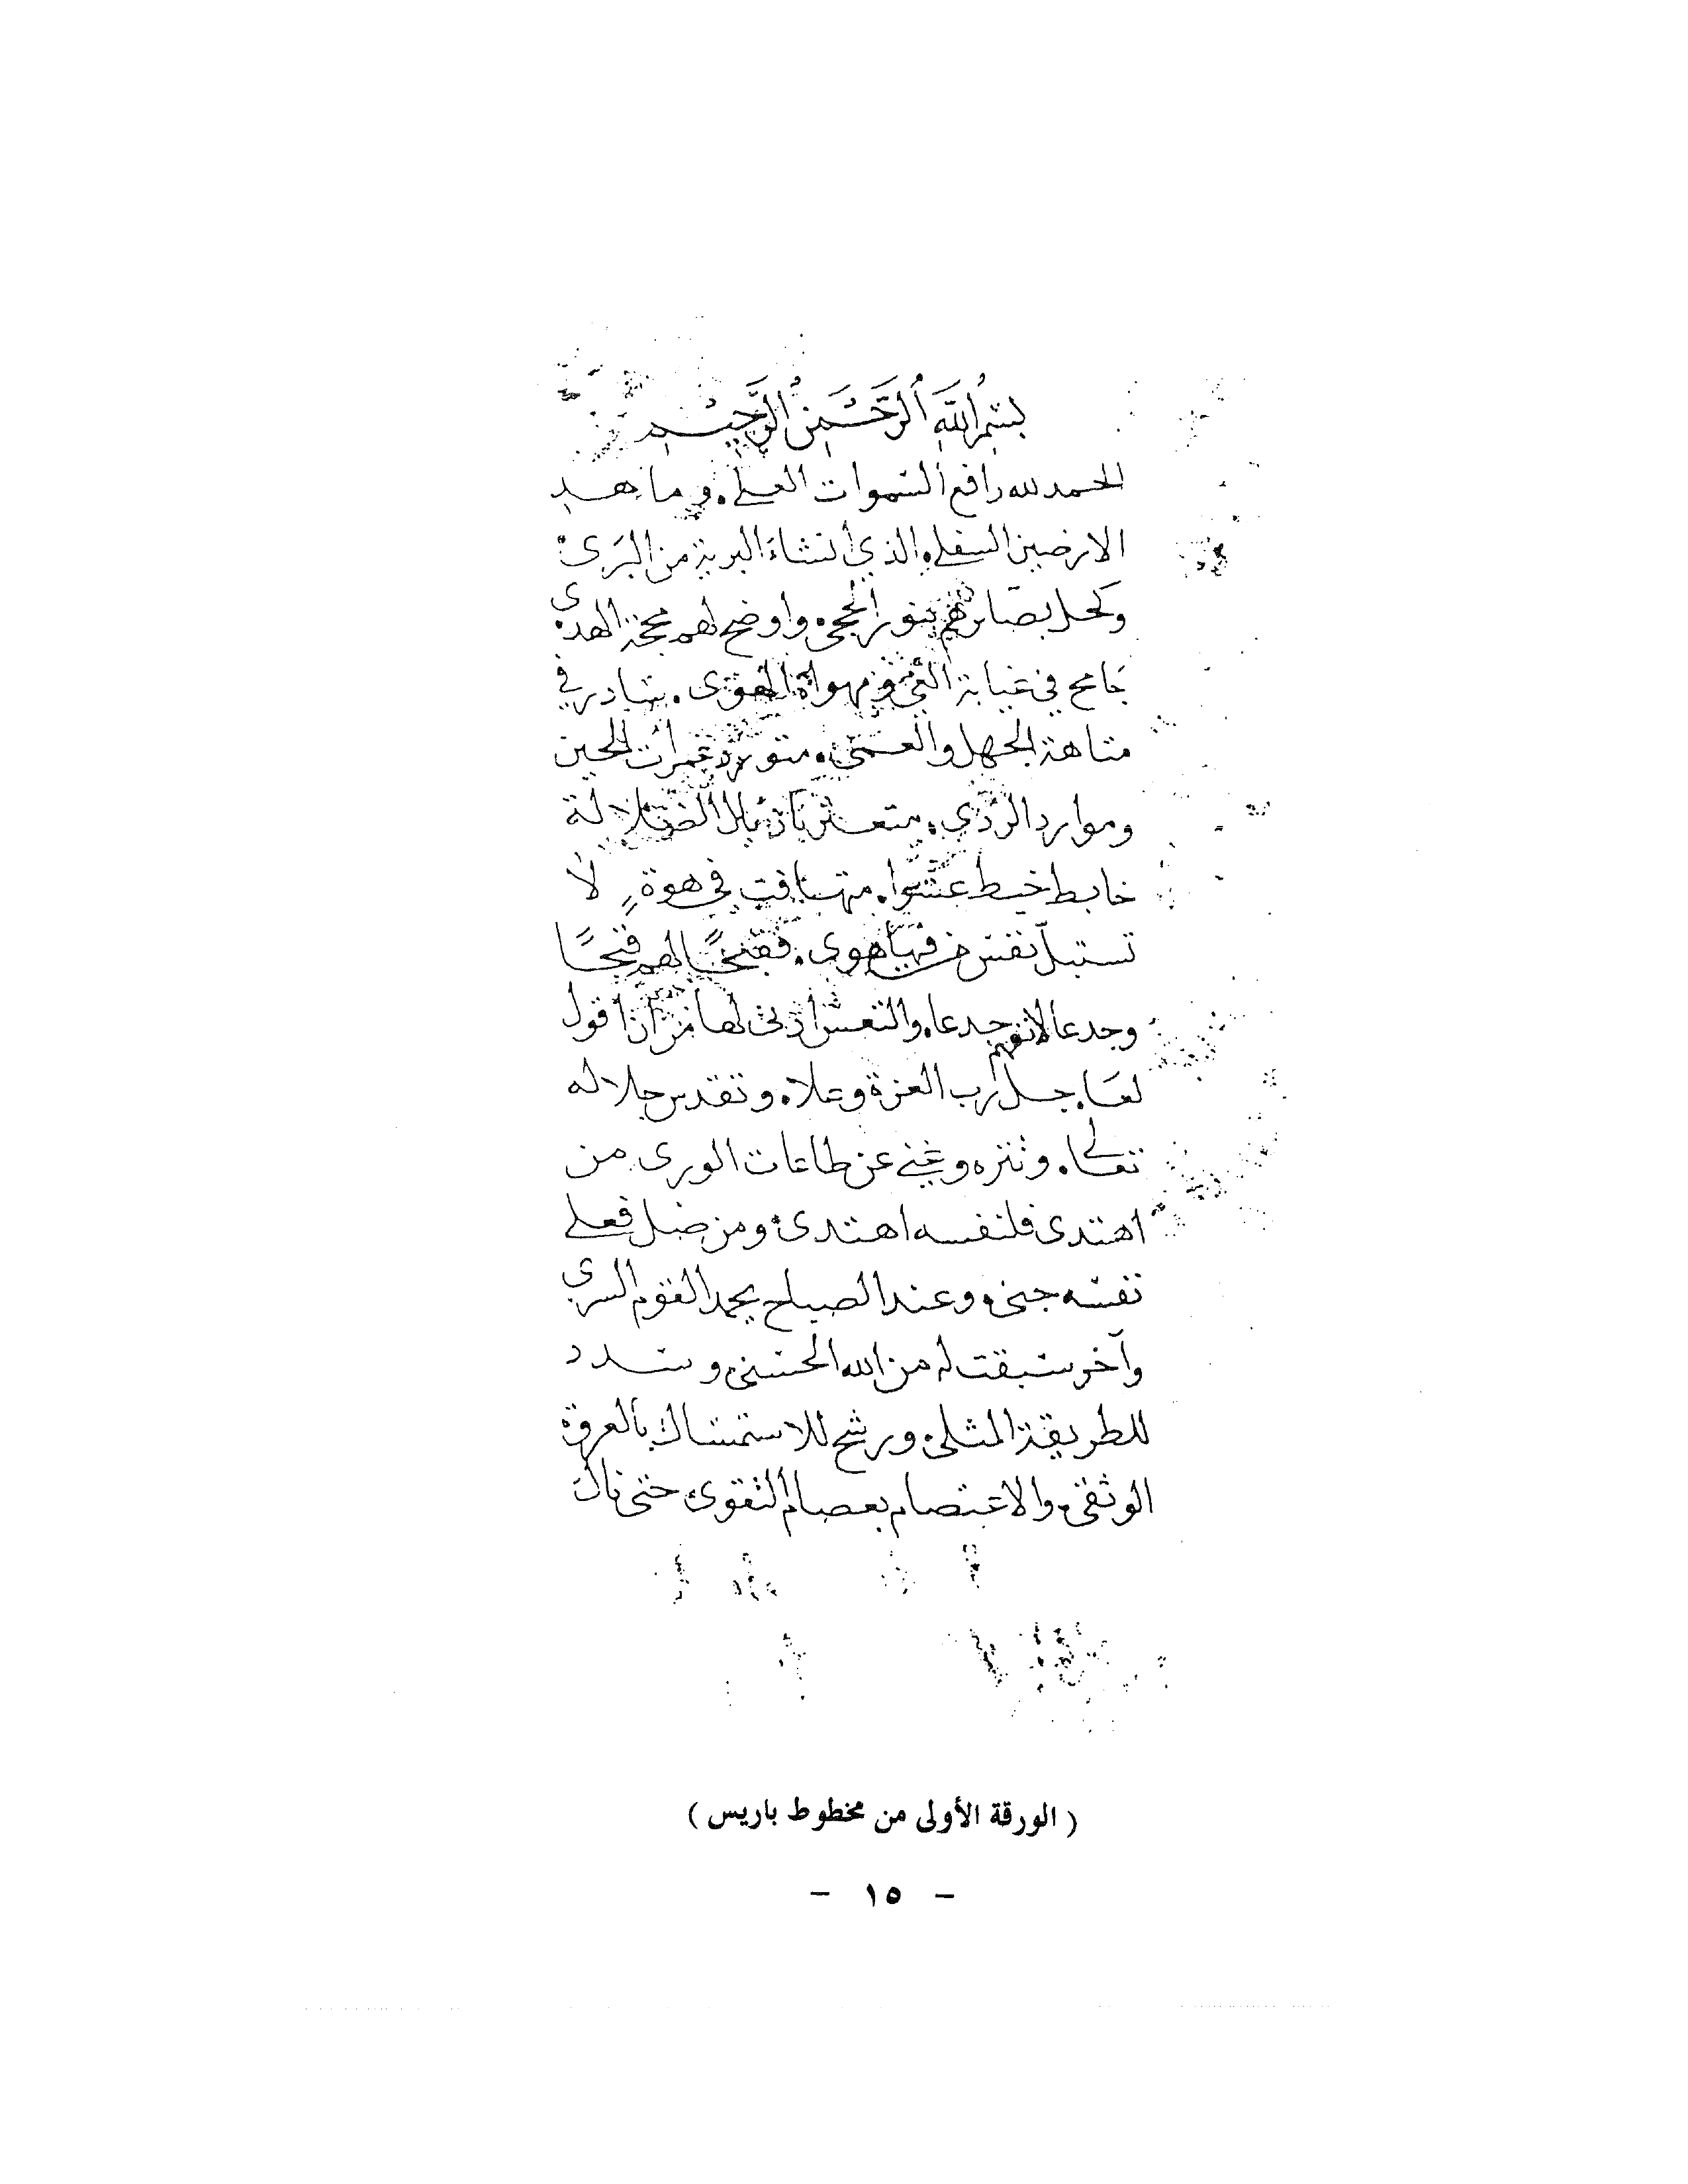 بِسْمِ اللَّهِ الرَّحْمَنِ الرَّحِيمِ
الحمد لله رافع السموات العلى. وماهد
الارضين السفلى. الذي أنشاء البرية من البَرَى.
وكحل بصائرهم بنور الحجى. واوضح لهم محجة الهدى.
جَامح في غيابة الغي ومهواة الهوى. سادر في
متاهة الجهل والعمى. متورد غمرات الحين
وموارد الردَي. متعثر بأذيال الضلالة
خابط خبط عشوا. متهافت في هوةٍ لا
تستبلّ نفس من فيها هوى. فقبحًا لهم قبحًا
وجدعا لانفهم جدعا. والتعس ادنى لها من ان اقول
لعَا. جل رب العزة وعلا. وتقدس جلاله
تعالى. وتنزه وغني عن طاعات الورى من
اهتدى فلنفسه اهتدى. ومن ضل فعلى
نفسه جنى. وعند الصباح يحمد القوم السري
وآخر سبقت له من الله الحسنى. وسدد
للطريقة المثلى. ورشح للاستمساك بالعروة
الوثقى. والاعتصام بعصام التقوى. حتى ناك
( الورقة الأولى من مخطوط باريس )
– ١٥ –